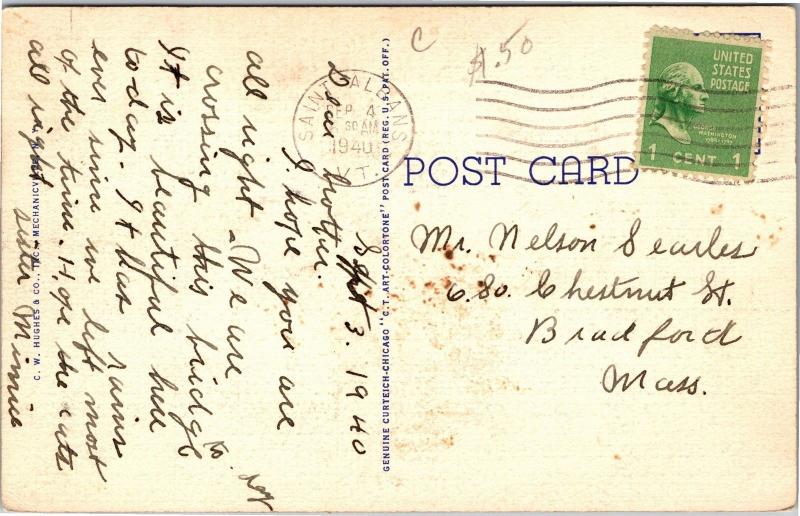 C
$1.50
UNITED
STATES
POSTAGE
GEORGE
WASHINGTON
1789-1797
1 CENT 1
SAINT ALBANS
SEP 4
30 AM
1940
VT.
POST CARD
Mr. Nelson Searles
680. Chestnut St.
Bradford
Mass.
GENUINE CURTEICH-CHICAGO "C.T. ART-COLORTONE" POST CARD (REG. U.S. PAT. OFF.)
Sept 3. 1940
Dear brother.
I hope you are
all right - We are
crossing this bridge
to day
It is beautiful here
to day. It has rains
ever since we left most
of the time. Hope the cats
all right
sister Minnie
C. W. HUGHES & CO., INC., MECHANICVILLE, N. Y.